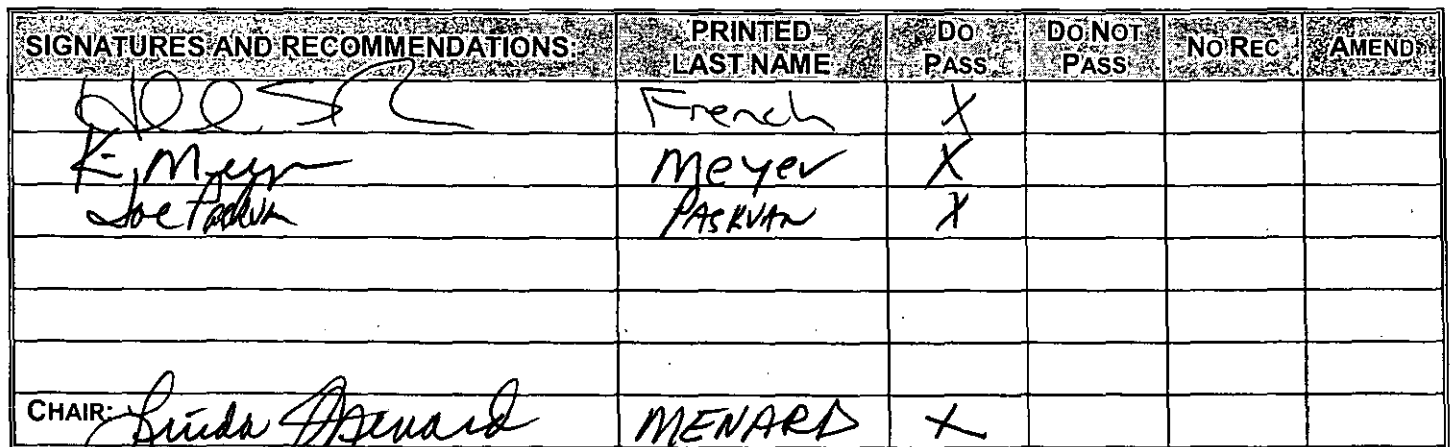 SIGNATURES AND RECOMMENDATIONS: PRINTED LAST NAME DO PASS DO NOT PASS NO REC AMEND
French X
K- Meyer Meyer X
Joe Paskvan PASKVAN X
CHAIR: Linda Menard MENARD X